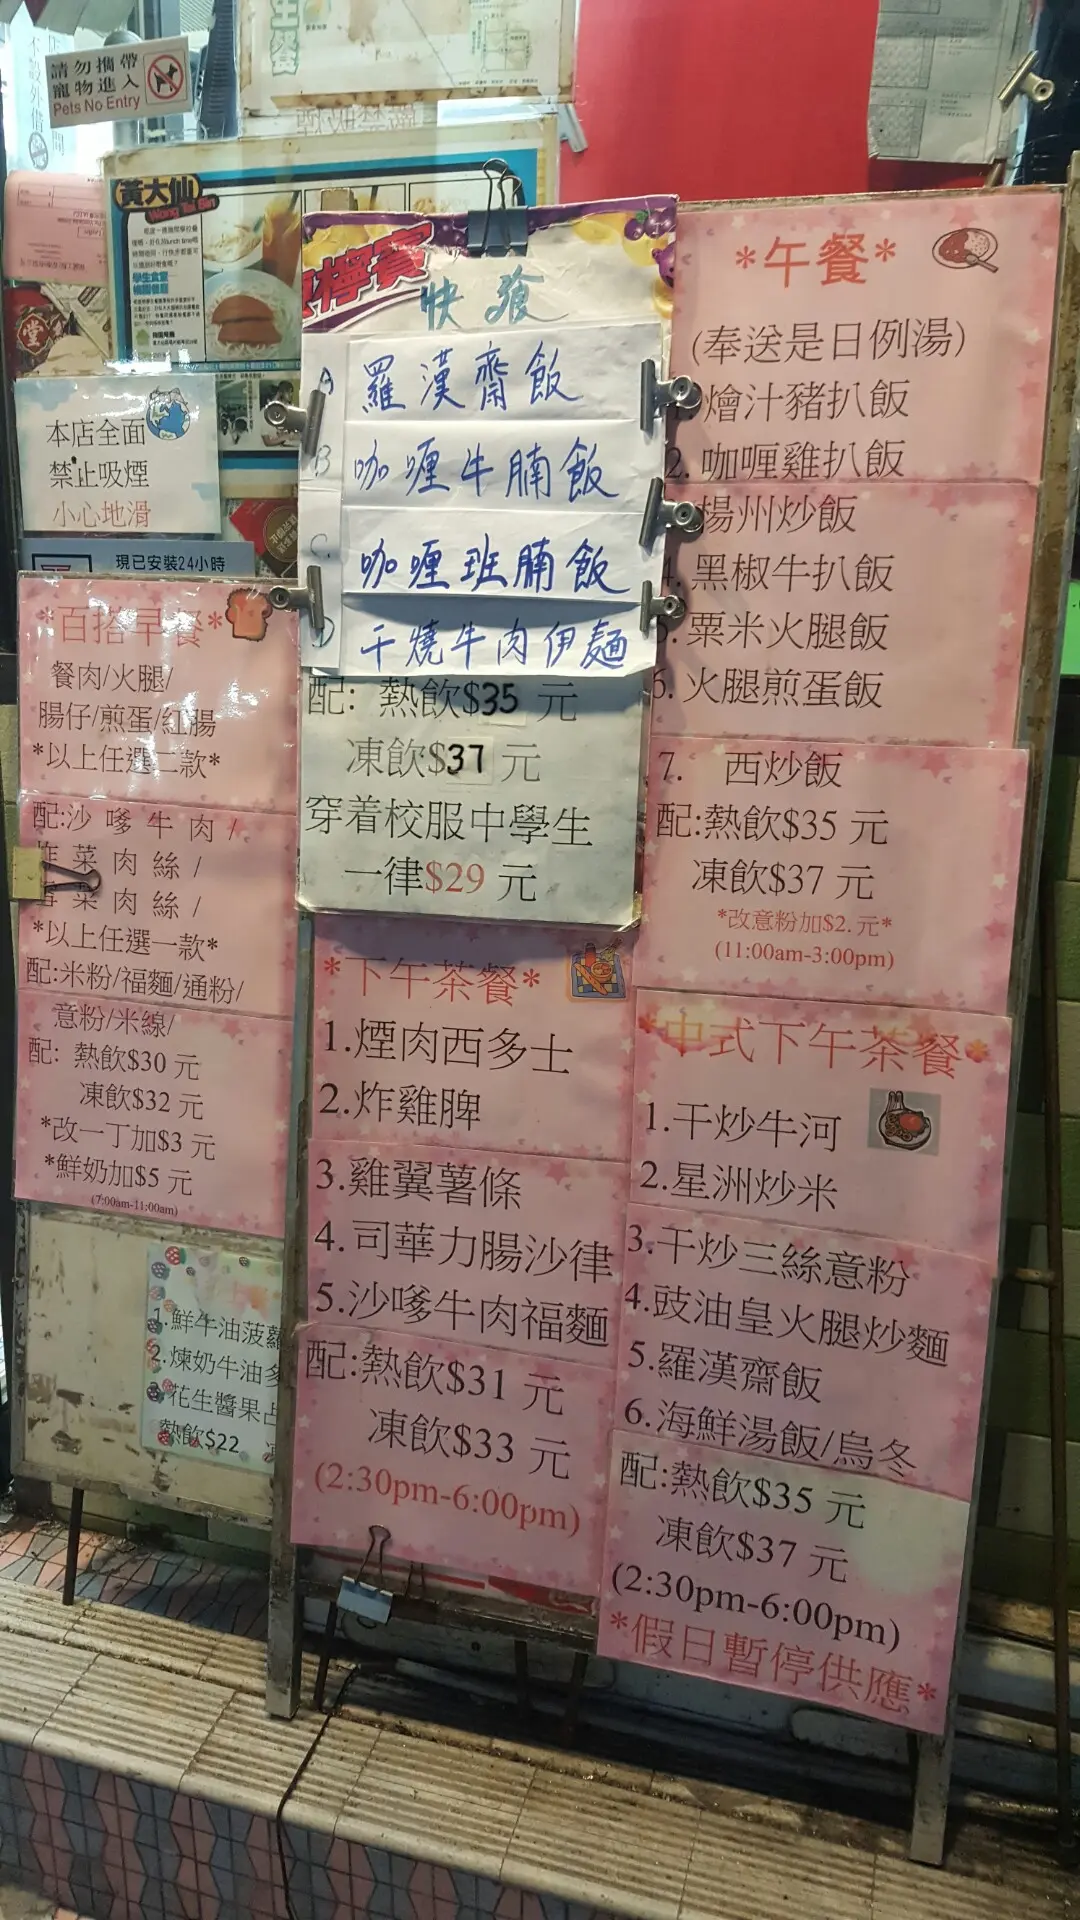 請勿攜帶
寵物進入
Pets No Entry
黃大仙
Wong Tai Sin
學生食堂
本店全面
禁止吸煙
小心地滑
現已安裝24小時
*百搭早餐*
餐肉/火腿/
腸仔/煎蛋/紅腸
*以上任選二款*
配:沙嗲牛肉/
菜肉絲/
菜肉絲/
*以上任選一款*
配:米粉/福麵/通粉/
意粉/米線/
配: 熱飲$30 元
凍飲$32 元
*改一丁加$3 元
*鮮奶加$5 元
(7:00am-11:00am)
1.鮮牛油菠蘿
2.煉奶牛油多
花生醬果占
熱飲$22
檸賓
快飡
A 羅漢齋飯
B 咖喱牛腩飯
C 咖喱班腩飯
D 干燒牛肉伊麵
配: 熱飲$35 元
凍飲$37 元
穿着校服中學生
一律$29 元
*下午茶餐*
1.煙肉西多士
2.炸雞脾
3.雞翼薯條
4.司華力腸沙律
5.沙嗲牛肉福麵
配:熱飲$31 元
凍飲$33 元
(2:30pm-6:00pm)
*午餐*
(奉送是日例湯)
燴汁豬扒飯
2. 咖喱雞扒飯
揚州炒飯
4. 黑椒牛扒飯
5. 粟米火腿飯
6. 火腿煎蛋飯
7. 西炒飯
配:熱飲$35 元
凍飲$37 元
*改意粉加$2.元*
(11:00am-3:00pm)
*中式下午茶餐*
1.干炒牛河
2.星洲炒米
3.干炒三絲意粉
4.豉油皇火腿炒麵
5.羅漢齋飯
6.海鮮湯飯/烏冬
配:熱飲$35 元
凍飲$37 元
(2:30pm-6:00pm)
*假日暫停供應*